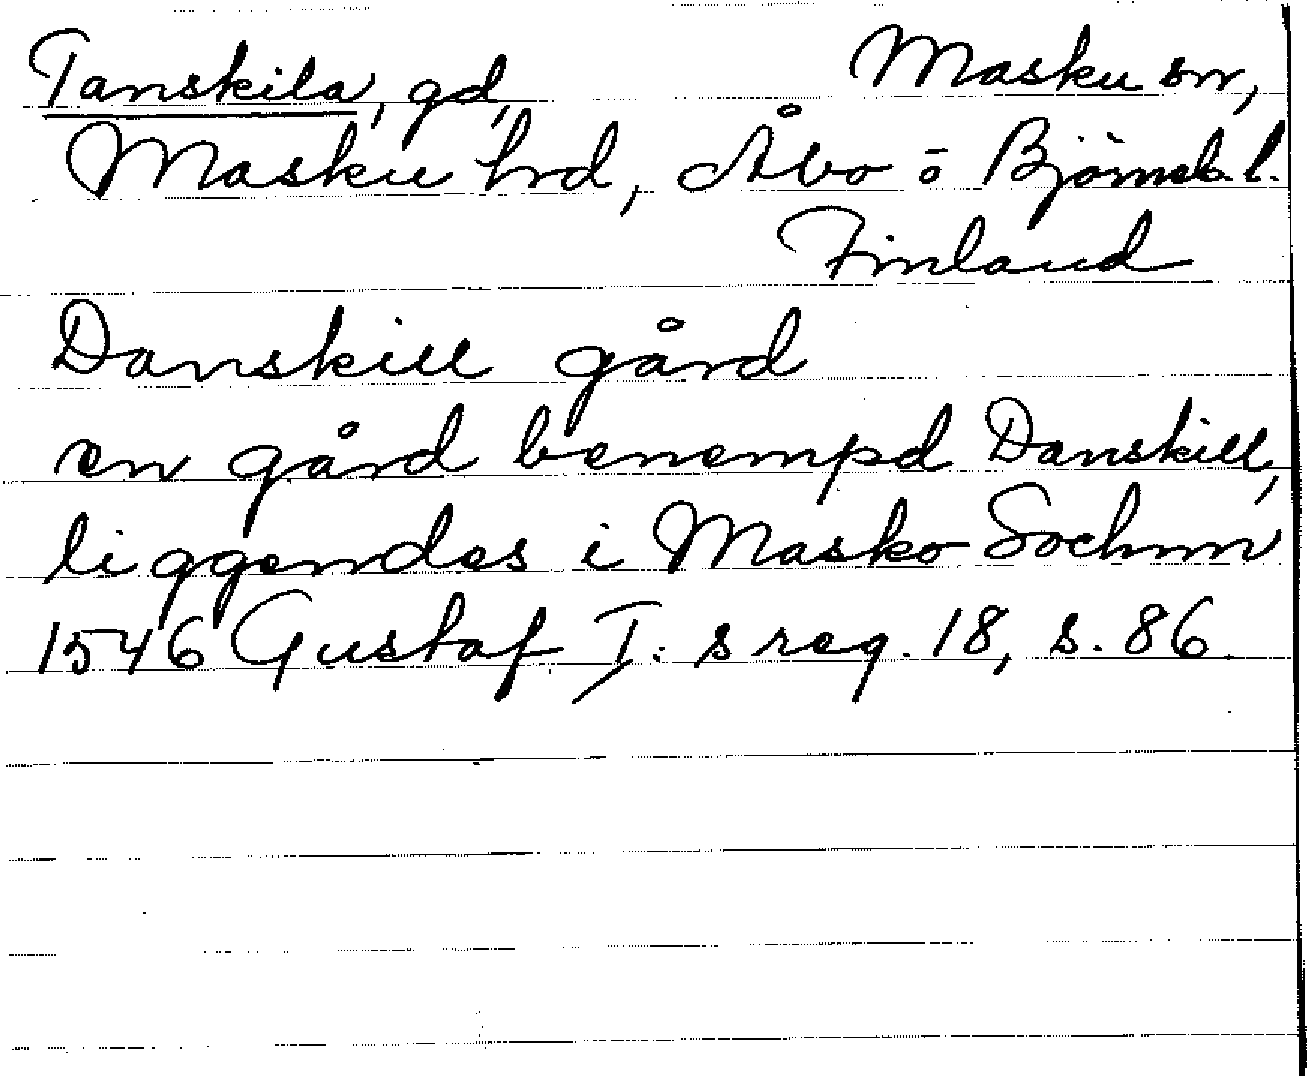 Tanskila, gd, Masku sn,
Masku hrd, Åbo o Björneb. l.
Finland
Danskill gård
en gård benempd Danskill,
liggendes i Masko Sochnn
1546 Gustaf I: s reg. 18, s. 86.